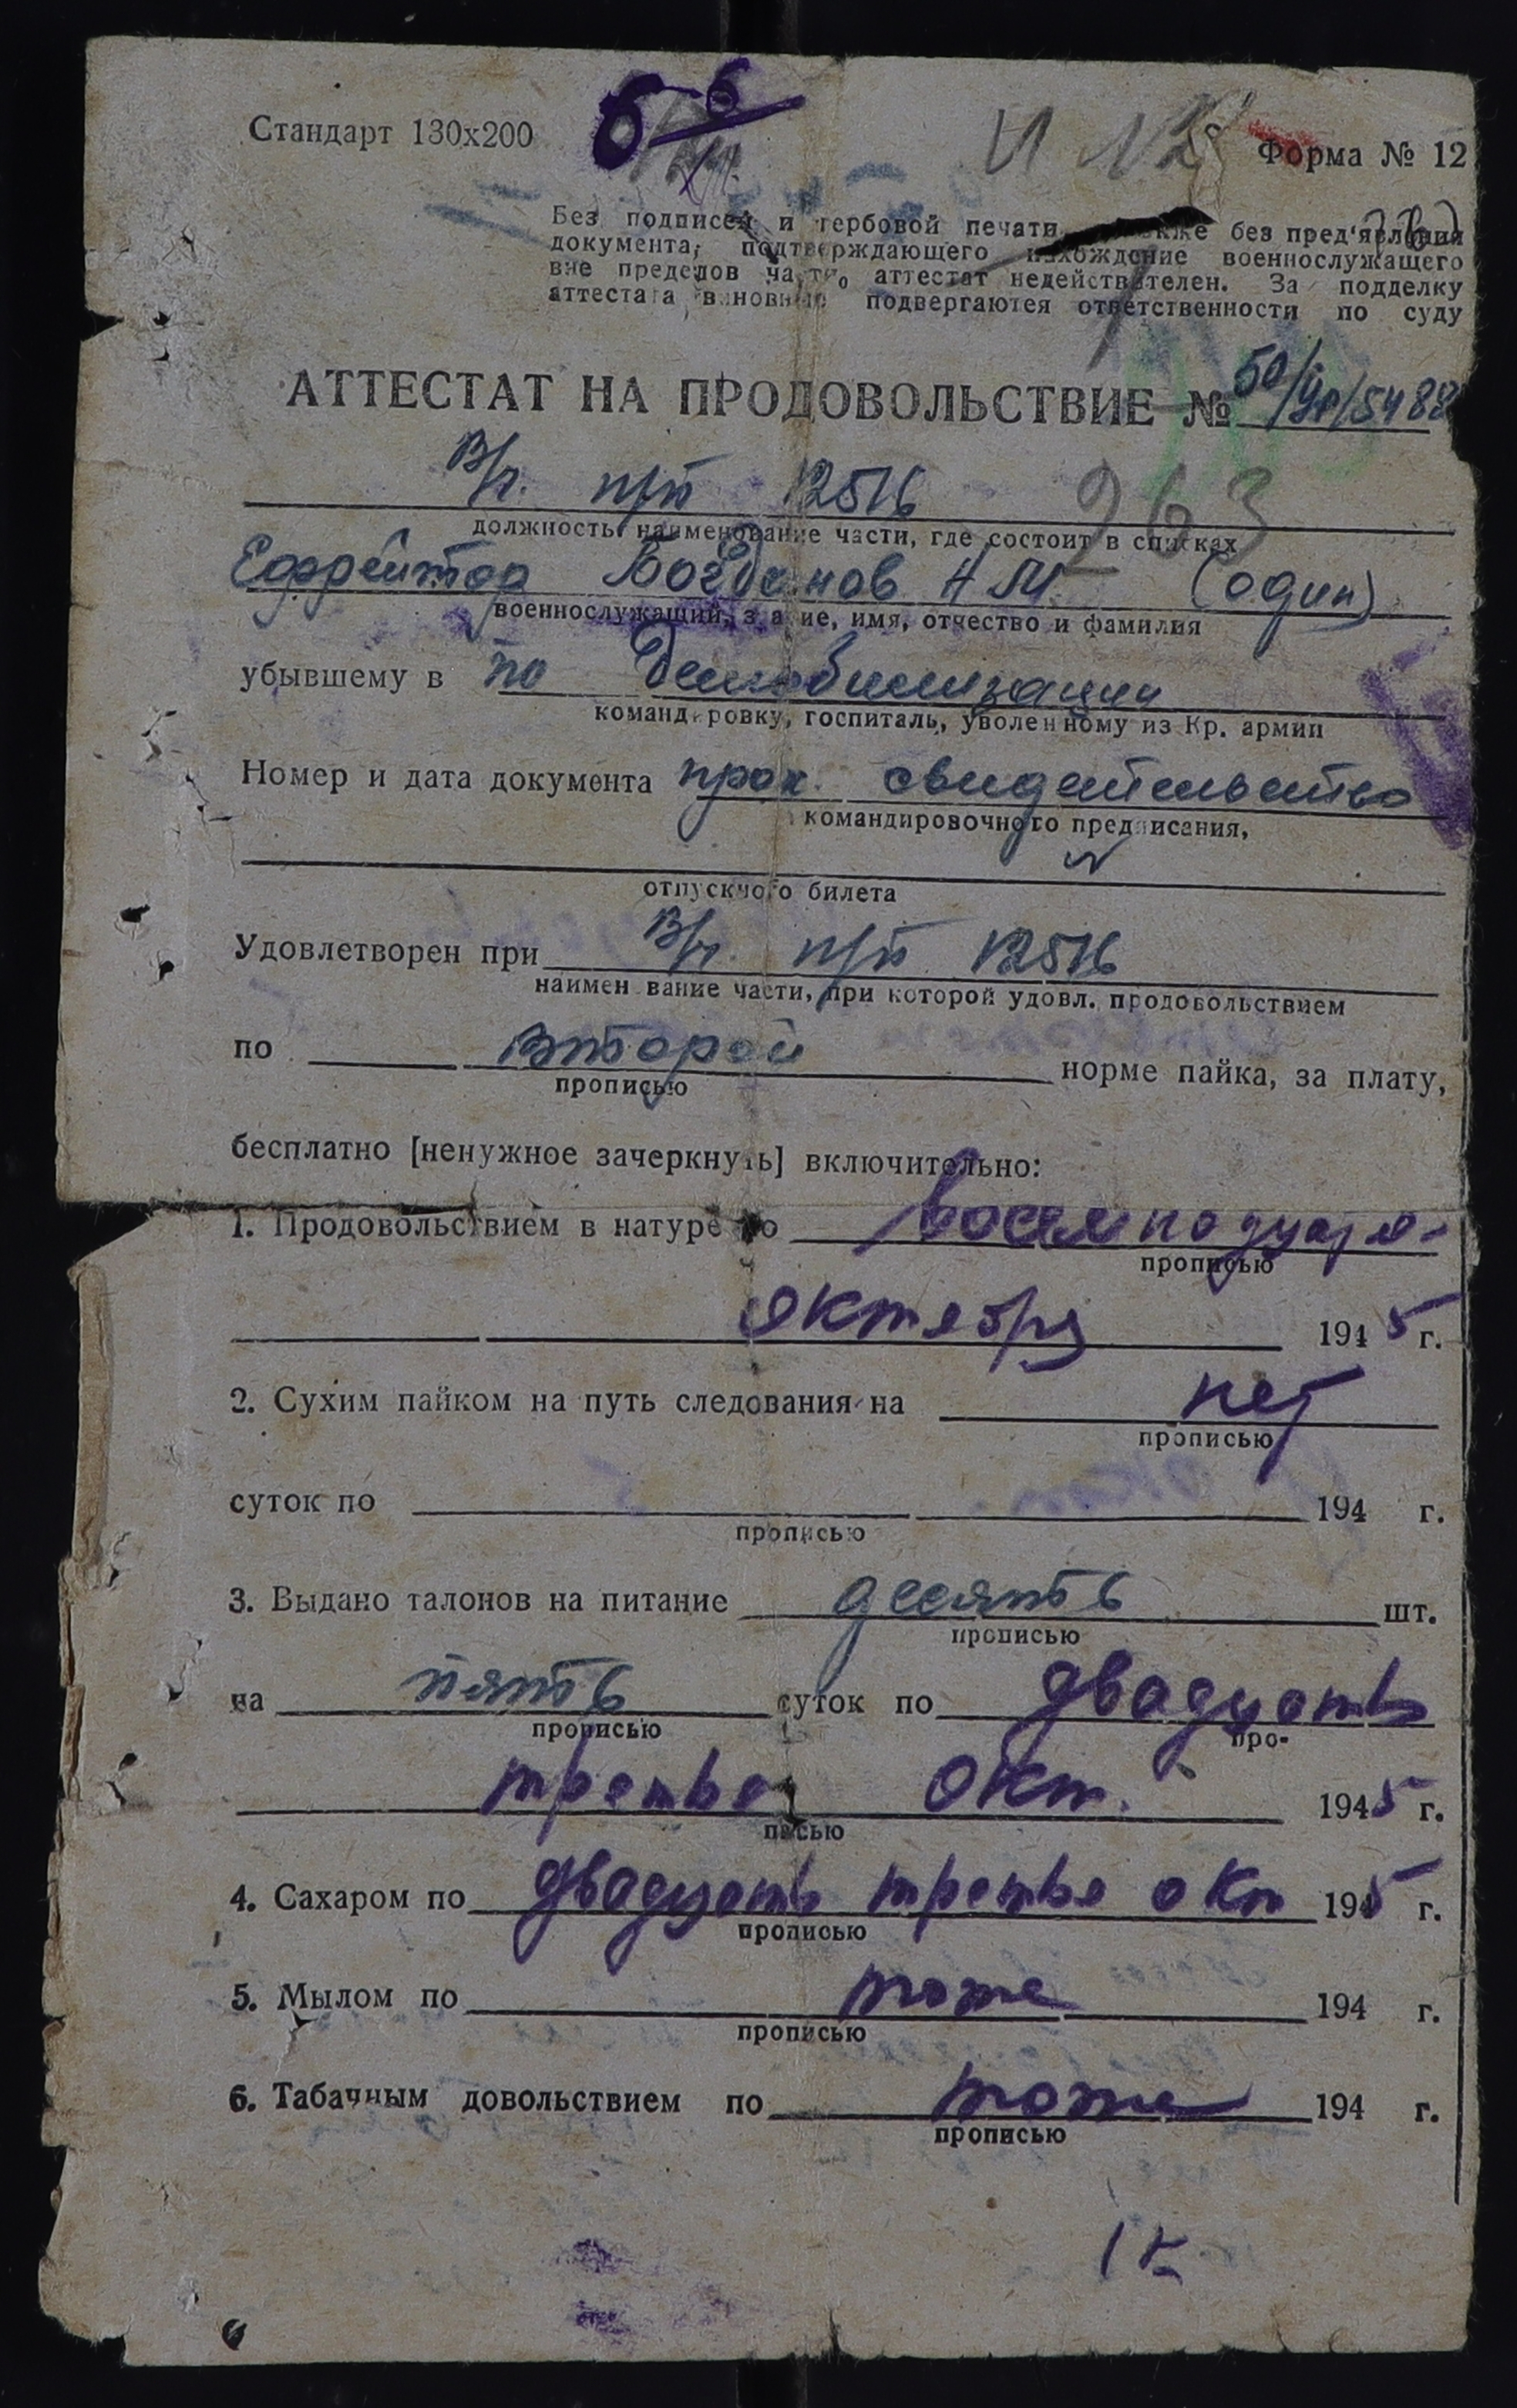 Стандарт 130х200
Форма № 12
Без подписей и гербовой печати, также без пред'явления
документа, подтверждающего нахождение военнослужащего
вне пределов части, аттестат недействителен. За подделку
аттестата виновные подвергаются ответственности по суду
АТТЕСТАТ НА ПРОДОВОЛЬСТВИЕ № 50/ /5488
В/ч. п/п 12516
263
должность наименование части, где состоит в списках
Ефрейтор Богданов Н М. (один)
военнослужащий, звание, имя, отчество и фамилия
убывшему в по демобилизации
командировку, госпиталь, уволенному из Кр. армии
Номер и дата документа прох. свидетельство
командировочного предписания,
отпускного билета
Удовлетворен при В/ч. п/п 12516
наименование части, при которой удовл. продовольствием
по второй норме пайка, за плату,
прописью
бесплатно [ненужное зачеркнуть] включительно:
1. Продовольствием в натуре по
прописью
октября 1945 г.
2. Сухим пайком на путь следования на нет
прописью
суток по 194 г.
прописью
3. Выдано талонов на питание десять шт.
прописью
на пять суток по двадцать
прописью про-
третье окт. 1945 г.
писью
4. Сахаром по двадцать третье окт 1945 г.
прописью
5. Мылом по тоже 194 г.
прописью
6. Табачным довольствием по тоже 194 г.
прописью